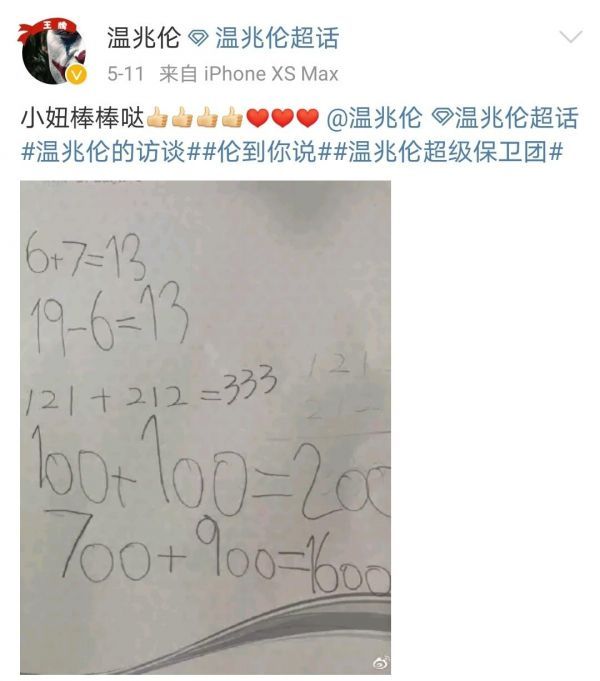 王牌
温兆伦 温兆伦超话
5-11 来自 iPhone XS Max
小妞棒棒哒👍🏻👍🏻👍🏻👍🏻❤️❤️❤️ @温兆伦 温兆伦超话
#温兆伦的访谈##伦到你说##温兆伦超级保卫团#
6+7=13
19-6=13
121+212=333
121
100+100=200
700+900=1600